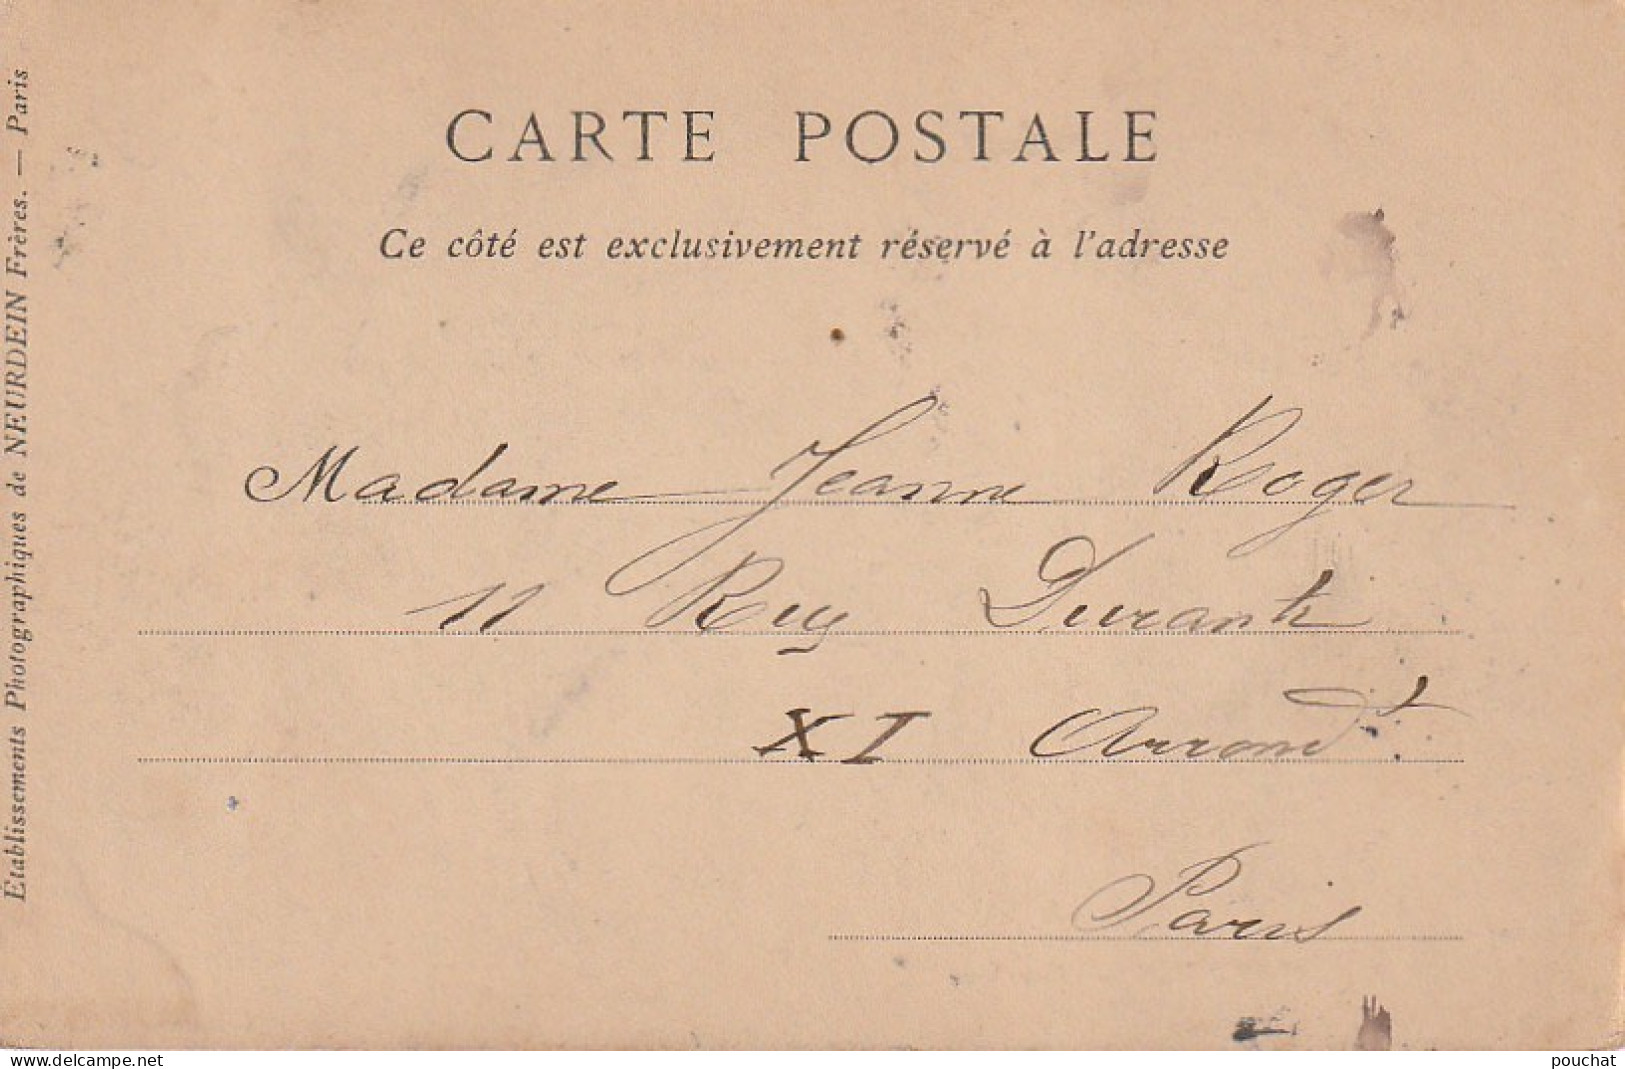 CARTE POSTALE
Ce côté est exclusivement réservé à l'adresse
Madame Jeanne Roger
11 Rue Duranti
XI Arrondt
Paris
Établissements Photographiques de NEURDEIN Frères. — Paris
www.delcampe.net
pouchat